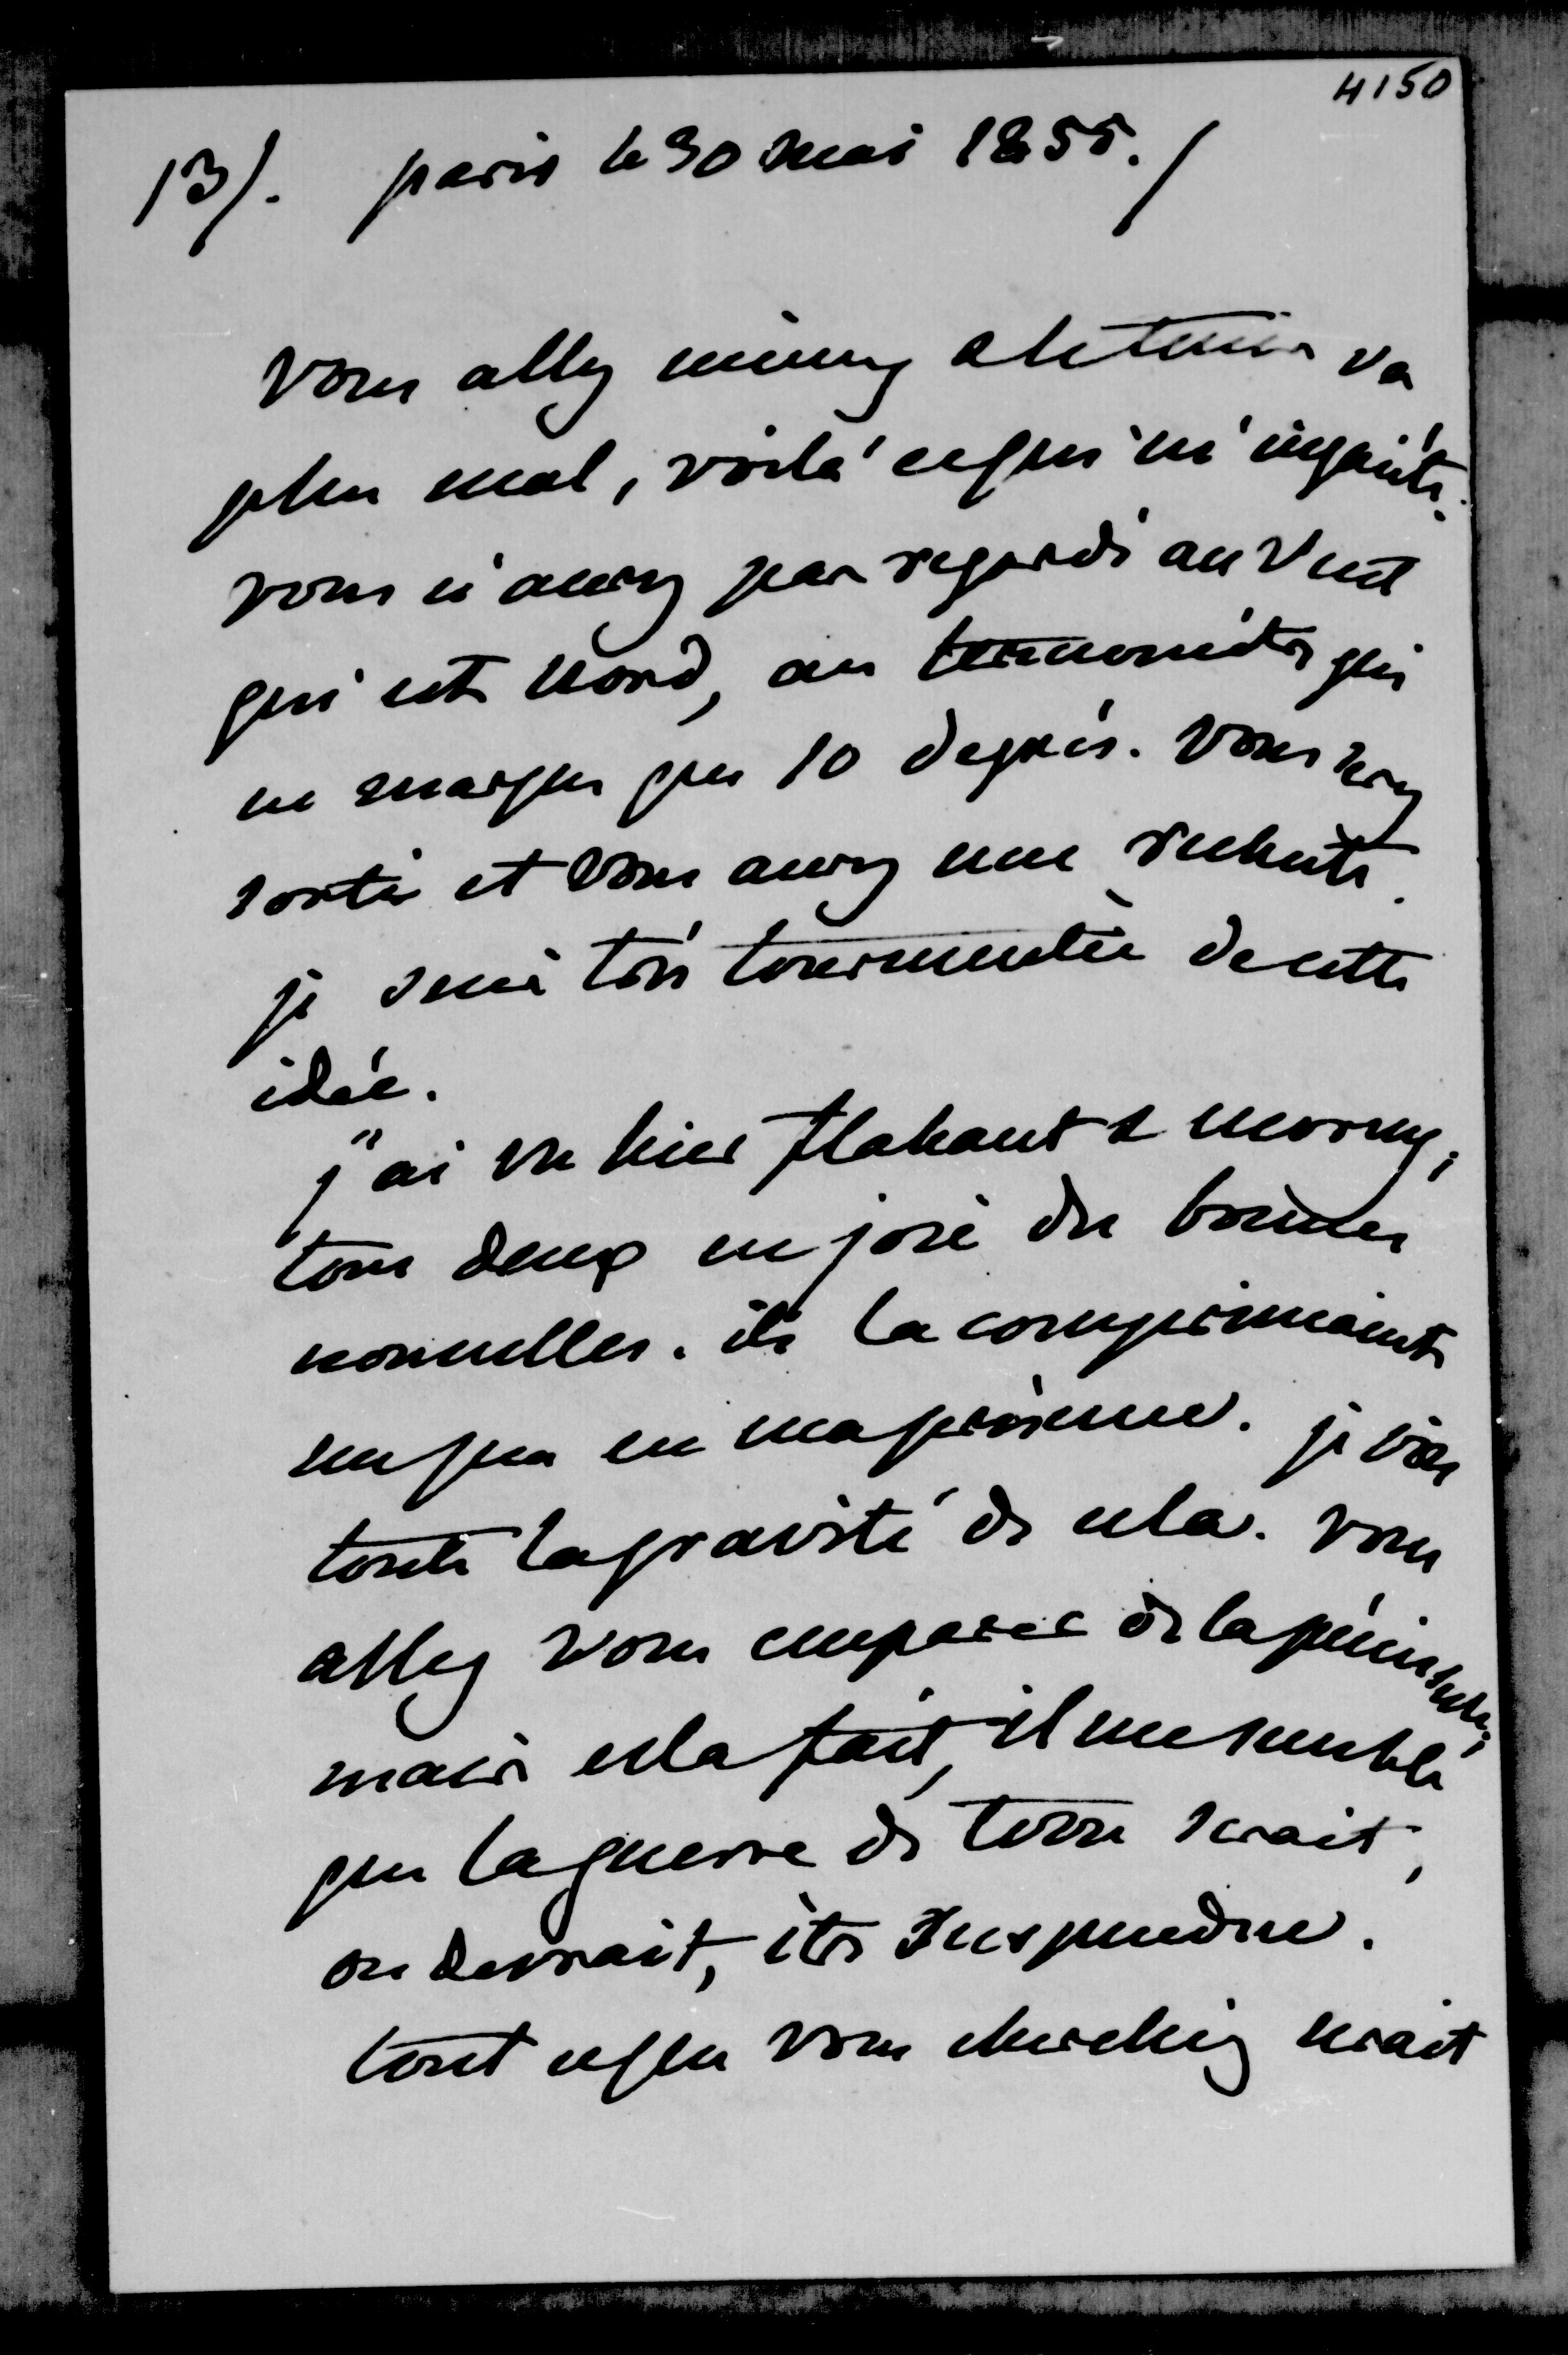 4150
13/. paris le 30 mai 1855./
vous allez mieux & le tems va
plus mal, voilà ce qui m'inquiète.
vous n'aurez pas regardé au vent
qui est nord, au termomètre qui
ne marque que 10 degrés. vous serez
sorti et vous aurez une rechute.
je suis très tourmentée de cette
idée.
j'ai vu hier Flahaut & Morny,
tous deux en joie des bonnes
nouvelles. ils la comprimaient
un peu en ma présence. je vois
toute la gravité de cela. vous
allez vous emparer de la péninsule,
mais cela fait, il me semble
que la guerre de terre serait,
ou devrait, être suspendue.
tout ce que vous cherchiez serait